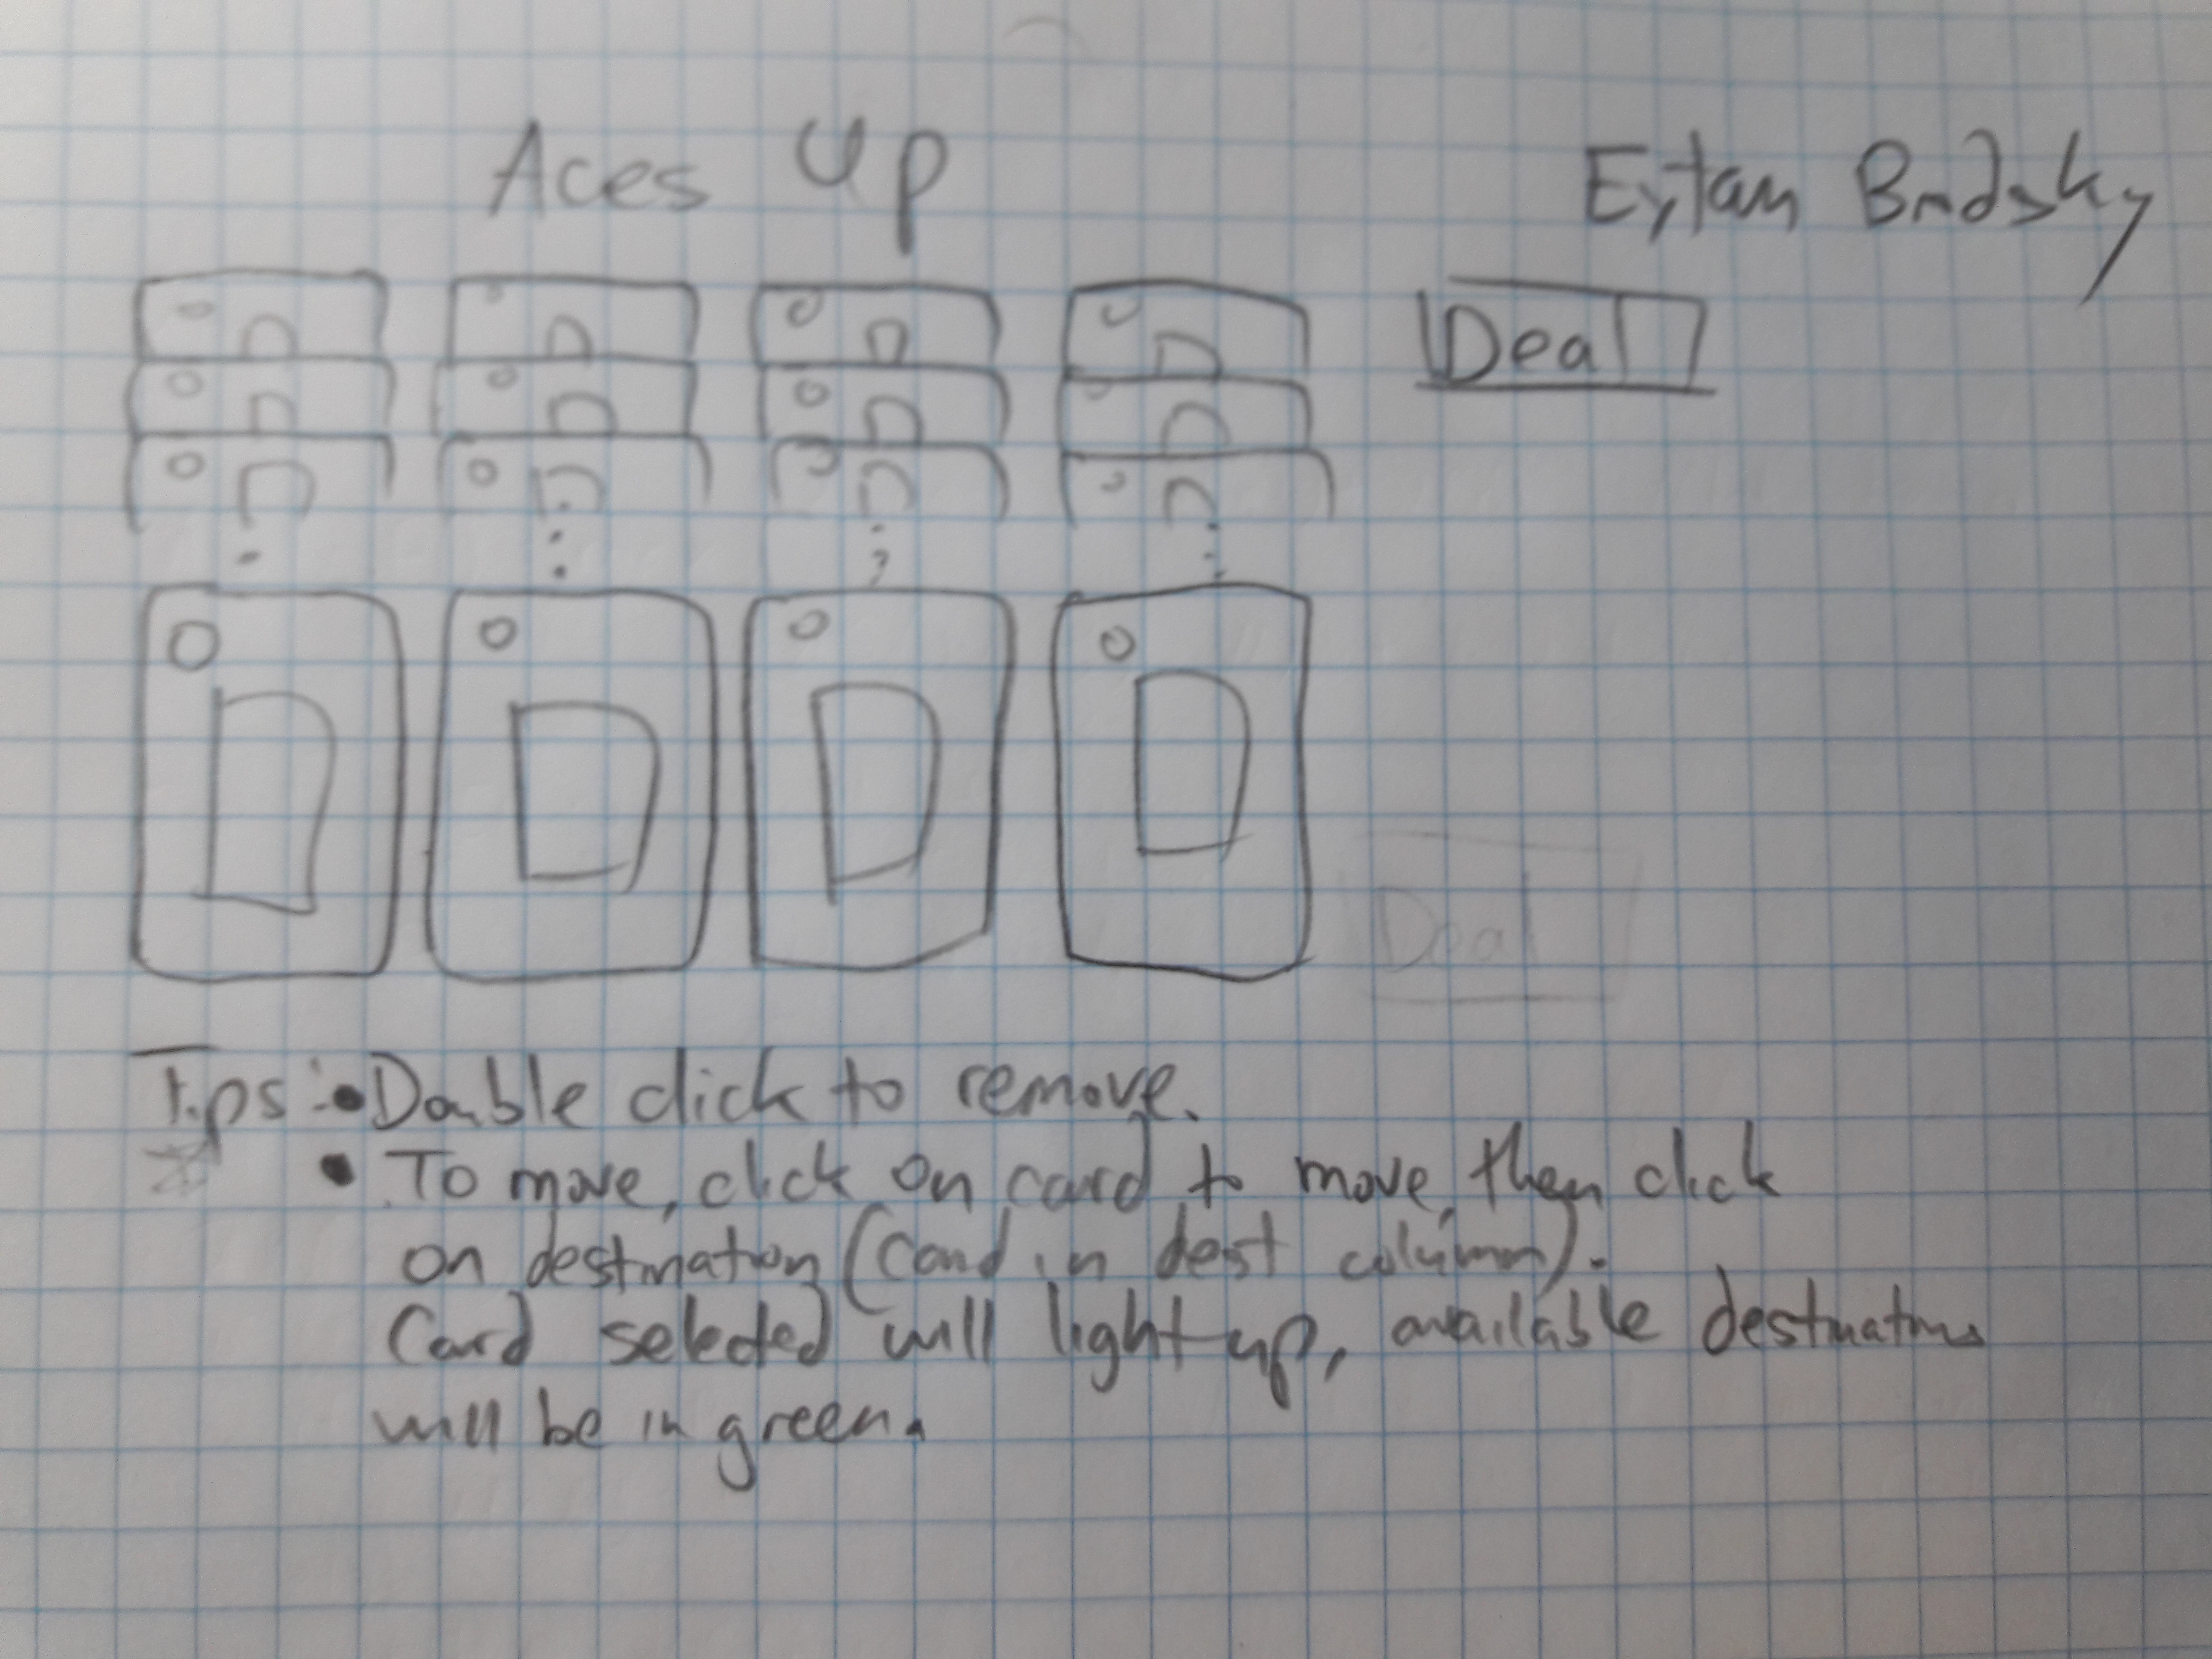 Aces Up
Eytan Brodsky
Deal
Deal
Tips: • Double click to remove.
• To move, click on card to move, then click
on destination (Card in dest column).
Card selected will light up, available destinations
will be in green.